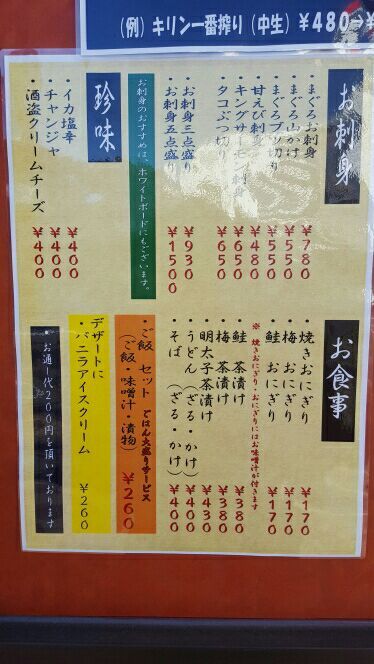 (例) キリン一番搾り (中生) ¥480→
お刺身
・まぐろお刺身 ¥780
・まぐろ山かけ ¥550
・まぐろブツ切り ¥550
・甘えび刺身 ¥480
・キングサーモン刺身 ¥650
・タコぶつ切り ¥650
・お刺身三点盛り ¥930
・お刺身五点盛り ¥1500
お刺身のおすすめは、ホワイトボードにもございます。
珍味
・イカ塩辛 ¥400
・チャンジャ ¥400
・酒盗クリームチーズ ¥400
お食事
・焼きおにぎり ¥170
・梅 おにぎり ¥170
・鮭 おにぎり ¥170
※ 焼きおにぎり・おにぎりにはお味噌汁が付きます
・鮭 茶漬け ¥380
・梅 茶漬け ¥380
・明太子茶漬け ¥430
・うどん (ざる・かけ) ¥400
・そば (ざる・かけ) ¥400
・ご飯 セット ごはん大盛りサービス
(ご飯・味噌汁・漬物) ¥260
デザートに
・バニラアイスクリーム ¥260
・お通し代200円を頂いております